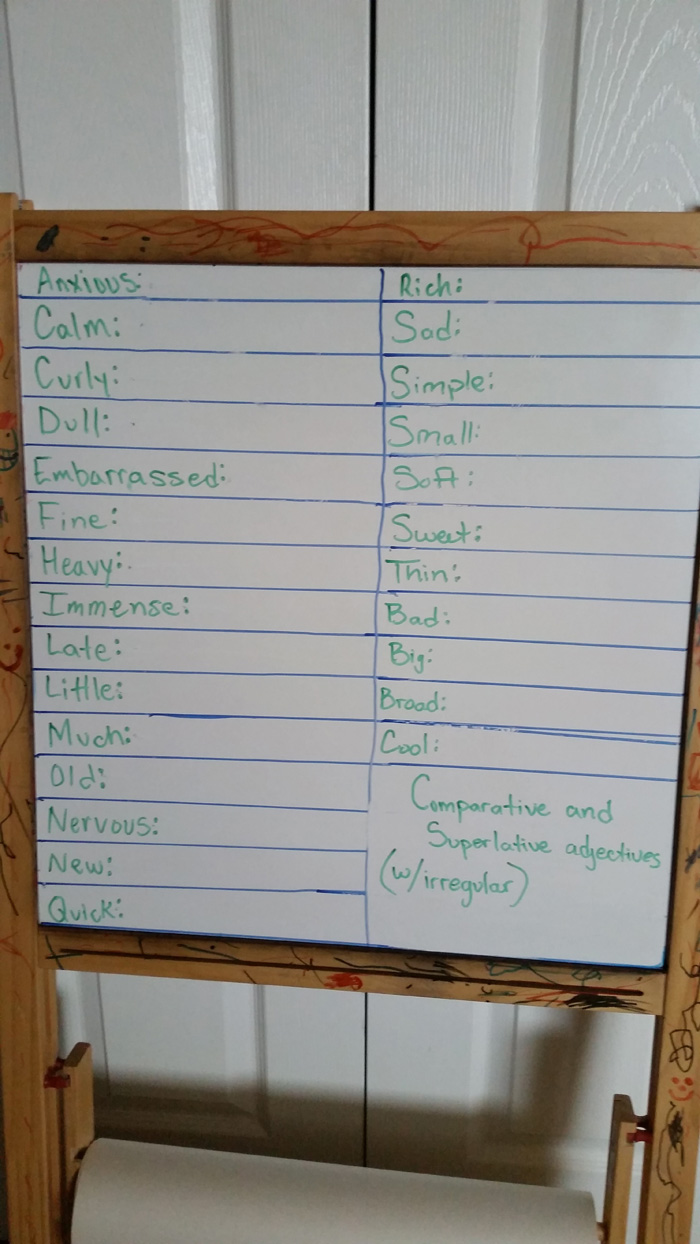 Anxious:
Calm:
Curly:
Dull:
Embarrassed:
Fine:
Heavy:
Immense:
Late:
Little:
Much:
Old:
Nervous:
New:
Quick:
Rich:
Sad:
Simple:
Small:
Soft:
Sweet:
Thin:
Bad:
Big:
Broad:
Cool:
Comparative and
Superlative adjectives
(w/irregular)